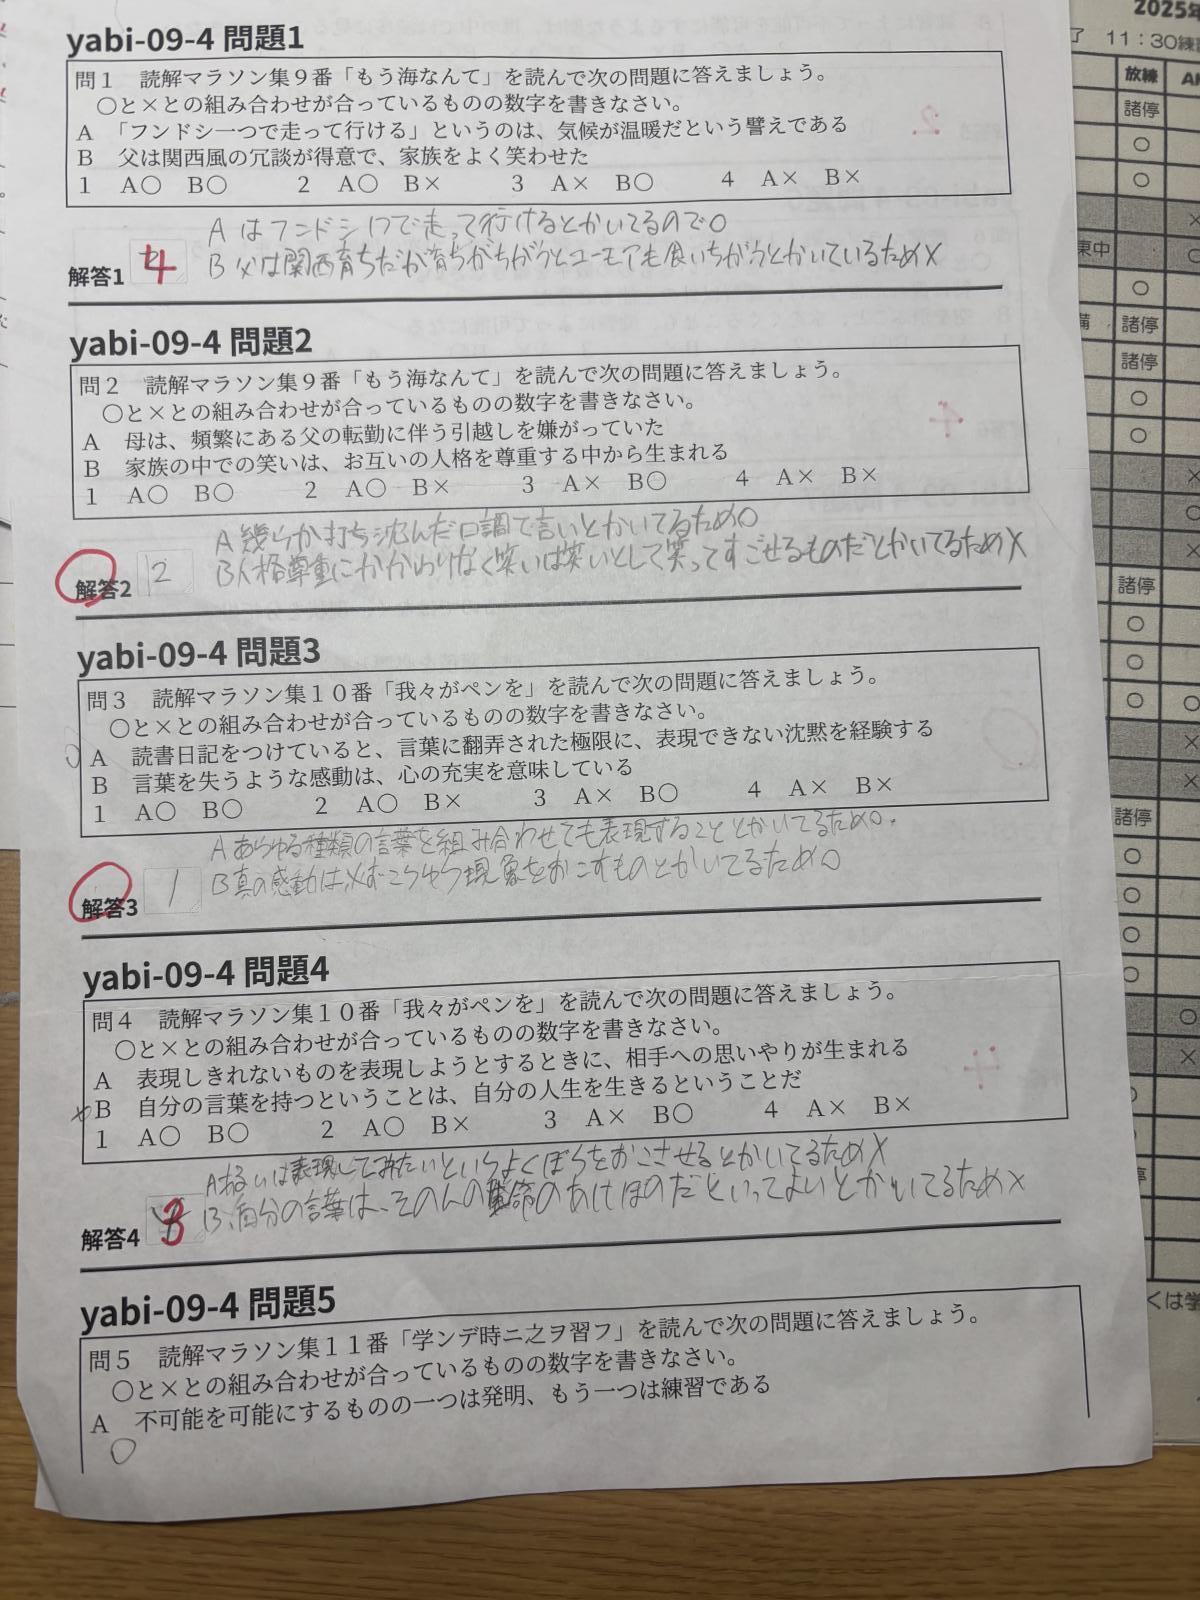 yabi-09-4 問題1
問１　読解マラソン集９番「もう海なんて」を読んで次の問題に答えましょう。
○と×との組み合わせが合っているものの数字を書きなさい。
A　「フンドシ一つで走って行ける」というのは、気候が温暖だという譬えである
B　父は関西風の冗談が得意で、家族をよく笑わせた
1　A○　B○　2　A○　B×　3　A×　B○　4　A×　B×
Aはフンドシ1つで走って行けるとかいてるので○
B 父は関西育ちだが育ちがちがうとユーモアも食いちがうとかいているため×
解答1 4
yabi-09-4 問題2
問２　読解マラソン集９番「もう海なんて」を読んで次の問題に答えましょう。
○と×との組み合わせが合っているものの数字を書きなさい。
A　母は、頻繁にある父の転勤に伴う引越しを嫌がっていた
B　家族の中での笑いは、お互いの人格を尊重する中から生まれる
1　A○　B○　2　A○　B×　3　A×　B○　4　A×　B×
A 幾らか打ち沈んだ口調で言いとかいてるため○
B人格尊重にかかわりなく笑いは笑いとして笑ってすごせるものだとかいてるため×
解答2 2
yabi-09-4 問題3
問３　読解マラソン集１０番「我々がペンを」を読んで次の問題に答えましょう。
○と×との組み合わせが合っているものの数字を書きなさい。
A　読書日記をつけていると、言葉に翻弄された極限に、表現できない沈黙を経験する
B　言葉を失うような感動は、心の充実を意味している
1　A○　B○　2　A○　B×　3　A×　B○　4　A×　B×
A あらゆる種類の言葉を組み合わせても表現することとかいてるため○.
B 真の感動は必ずこうゆう現象をおこすものとかいてるため○
解答3 1
yabi-09-4 問題4
問４　読解マラソン集１０番「我々がペンを」を読んで次の問題に答えましょう。
○と×との組み合わせが合っているものの数字を書きなさい。
A　表現しきれないものを表現しようとするときに、相手への思いやりが生まれる
B　自分の言葉を持つということは、自分の人生を生きるということだ
1　A○　B○　2　A○　B×　3　A×　B○　4　A×　B×
A 表現してみたいというよくぼうをおこさせるとかいてるため×
B.自分の言葉は、その人の命のあけぼのだといってよいとかいてるため×
解答4 3
yabi-09-4 問題5
問５　読解マラソン集１１番「学ンデ時ニ之ヲ習フ」を読んで次の問題に答えましょう。
○と×との組み合わせが合っているものの数字を書きなさい。
A　不可能を可能にするものの一つは発明、もう一つは練習である
○
2025年
了　11：30練
放練
諸停
○
○
東中
○
諸停
諸停
○
○
諸停
○
○
○
諸停
○
○
○
○
くは学